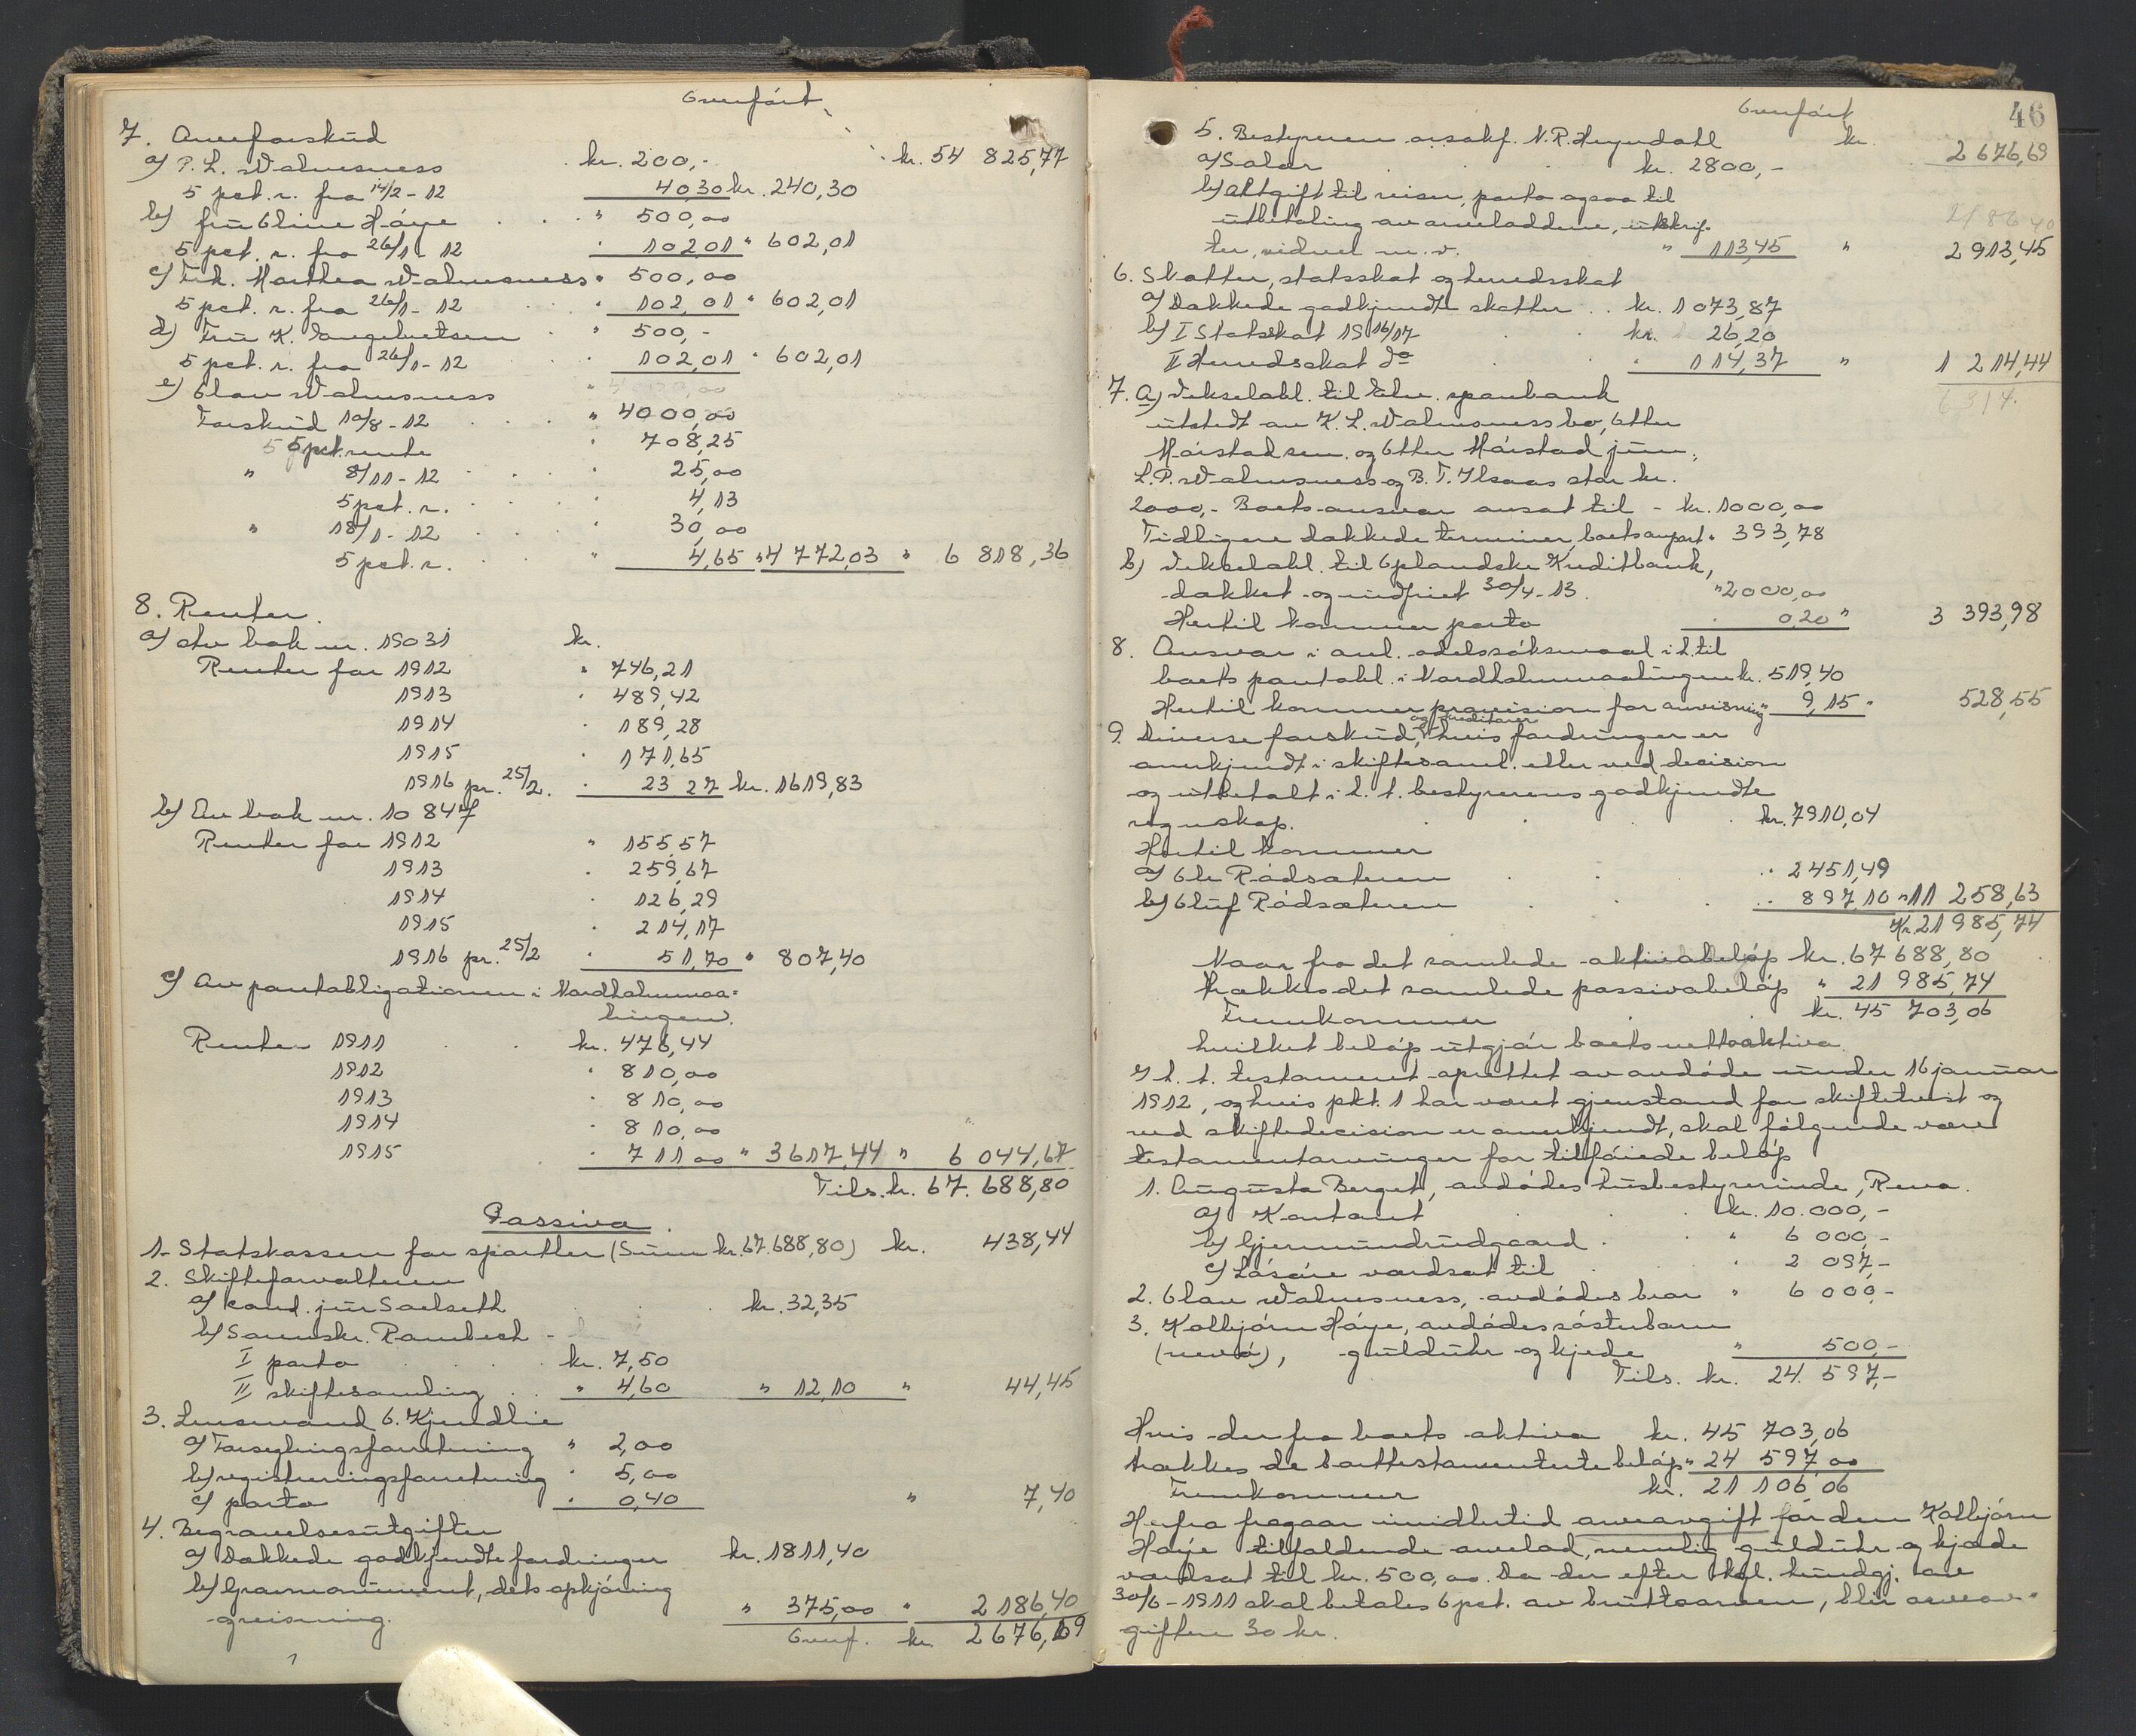 Overført
7. Arveforskud
a) P. L. Walmsness kr. 200,- kr. 54 825,77
5 pct. r. fra 14/2-12 40,30 kr. 240,30
b) fru Oline Høye " 500,00
5 pct. r. fra 26/1-12 102,01 " 602,01
c) Frk. Marthea Walmsness " 500,00
5 pct. r. fra 26/1-12 102,01 " 602,01
d) Fru K. Engebretsen " 500,-
5 pct. r. fra 26/1-12 102,01 " 602,01
e) Olav Walmsness
Forskud 10/8-12 " 4000,00
5 pct. rente 708,25
" 8/11-12 25,00
5 pct. r. 4,13
" 18/1-12 30,00
5 pct. r. " 4,65 " 4 772,03 " 6 818,36
8. Renter.
a) Av bok nr. 19031 kr.
Renter for 1912 " 746,21
1913 " 489,42
1914 " 189,28
1915 " 171,65
1916 pr. 25/2. 23 27 kr. 1619,83
b) Av bok nr. 10 847
Renter for 1912 " 155 57
1913 259,67
1914 126,29
1915 214,17
1916 pr. 25/2 51,70 " 807,40
c) Av pantobligationen i Nordholmmaa-
lingen.
Renter 1911 kr. 476,44
1912 " 810,00
1913 " 810,00
1914 " 810,00
1915 " 711 00 " 3617,44 " 6 044,67
Tils. kr. 67.688,80
Passiva.
1. Statskassen for sportler (Sum kr. 67.688,80) kr. 438,44
2. Skifteforvalteren
a) cand. jur Saelseth kr. 32,35
b) Sorenskr. Rambech -
I porto kr. 7,50
II skiftesamling " 4,60 " 12,10 " 44,45
3. Lensmand O. Kjendlie
a) Forseglingsforretning " 2,00
b) registreringsforretning " 5,00
c) porto " 0,40 " 7,40
4. Begravelsesutgifter
a) Dækkede godkjendte fordringer kr. 1811,40
b) Gravmonument, dets opkjøring
greisning. " 375,00 " 2 186,40
Overf. kr. 2 676,69
46
Overført
5. Bestyreren o.r.sakf. N. R. Heyerdahl kr. 2 676,69
a) Salær kr. 2800,-
b) Utgift til reiser, porto ogsaa til
utbetaling av arveloddene, utskrif-
ter, vidner m. v. " 113,45 " 2 913,45
6. Skatter, statsskat og herredsskat
a) Dækkede godkjendte skatter .. kr. 1 073,87
b) I Statsskat 1916/17 kr. 26,20
II Herredsskat do " 114,37 " 1 214,44
7. a) Vekselobl. til Elv. sparebank
utstedt av K. L. Walmsness bo, Other
Mørstad sen. og Other Mørstad jun.,
L. P. Walmsness og B. T. Ilsaas stor kr.
2000,- Boets ansvar ansat til - kr. 1000,00
Tidligere dækkede terminer, boets anpart " 393,78
b) Vekselobl. til Oplandske Kreditbank,
dækket og indfriet 30/4-13. " 2000,00
Hertil kommer porto 0,20 " 3 393,98
8. Ansvar i anl. odelssøksmaal i h. til
boets pantobl. i Nordholmmaalingen kr. 519,40
Hertil kommer provision for anvisning " 9,15 " 528,55
9. Diverse forskud, og kreditorer hvis fordringer er
anerkjendt i skiftesaml. eller ved decision
og utbetalt i h. t. bestyrerens godkjendte
regnskap. kr. 7910,04
Hertil kommer
a) Ole Rødsæteren 2451,49
b) Oluf Rødsæteren 897,10 " 11 258,63
Kr. 21 985,74
Naar fra det samlede aktivabeløp kr. 67 688,80
trækkes det samlede passivabeløp " 21 985,74
Fremkommer kr. 45 703,06
hvilket beløp utgjør boets nettoaktiva.
I h. t. testament oprettet av avdøde under 16 januar
1912, og hvis pkt. 1 har været gjenstand for skiftetvist og
ved skiftedecision er anerkjendt, skal følgende være
testamentarvinger for tilføiede beløp
1. Augusta Berget, avdødes husbestyrerinde, Rena.
a) Kontant kr. 10.000,-
b) Gjermundrudgaard " 6 000,-
c) Løsøre værdsat til " 2 097,-
2. Olav Walmsness, avdødes bror " 6 000,-
3. Kolbjørn Høye, avdødes søsterbarn
(nevø), gulduhr og kjede " 500,-
Tils. kr. 24. 597,-
Hvis der fra boets aktiva kr. 45 703,06
trækkes de borttestamenterte beløp " 24 597,00
Fremkommer kr. 21 106,06
Herfra fragaar imidlertid arveavgift for den Kolbjørn
Høye tilfaldende arvelod, nemlig gulduhr og kjæde
værdsat til kr. 500,00. Da der efter kgl. kundgj. av
30/6-1911 skal betales 6 pct. av bruttoarven, blir arveav-
giften 30 kr.